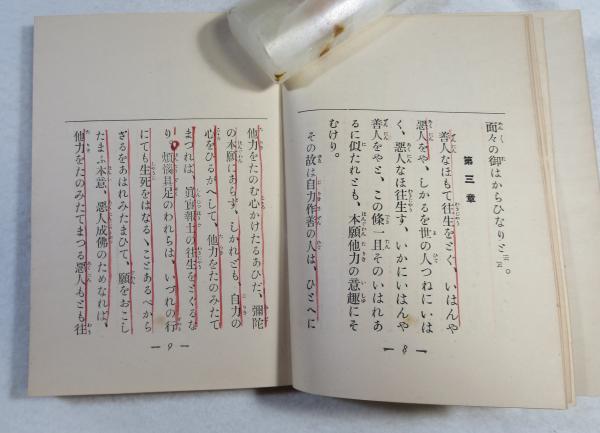 面々の御はからひなりと云云。
第三章
善人なほもて往生をとぐ、いはんや
悪人をや、しかるを世の人つねにいは
く、悪人なほ往生す、いかにいはんや
善人をやと、この條一旦そのいはれあ
るに似たれとも、本願他力の意趣にそ
むけり。
その故は自力作善の人は、ひとへに
— 8 —
他力をたのむ心かけたるあひだ、彌陀
の本願にあらず、しかれとも、自力の
心をひるがへして、他力をたのみたて
まつれは、眞實報土の往生をとぐるな
り、煩惱具足のわれらは、いづれの行
にても生死をはなるゝことあるべから
ざるをあはれみたまひて、願をおこし
たまふ本意、悪人成佛のためなれは、
他力をたのみたてまつる悪人もとも往
— 9 —